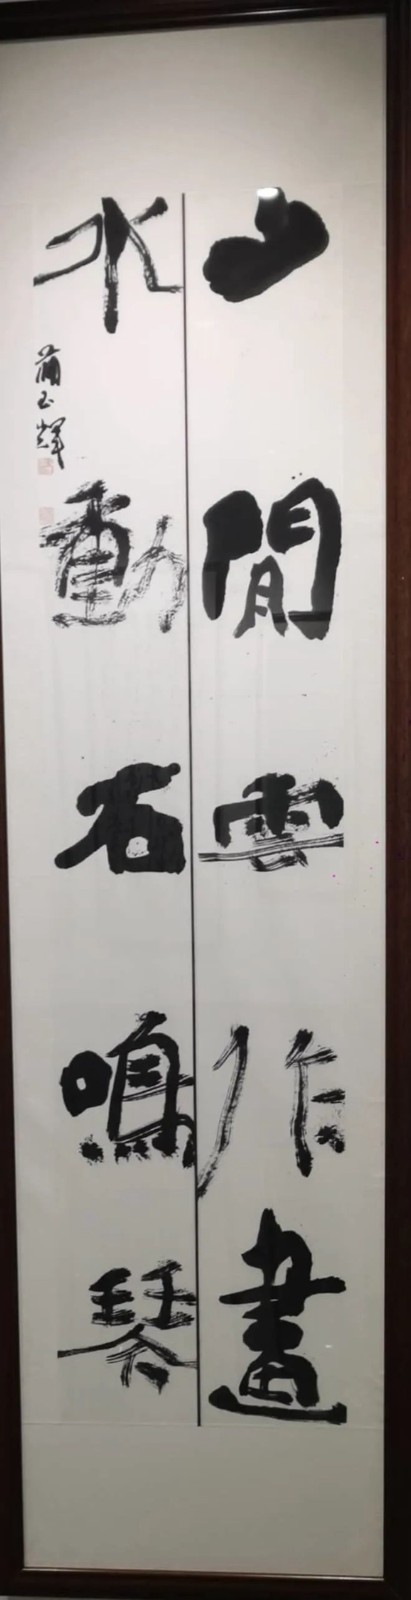 山閒雲作畫
水動石鳴琴
蒲玉輝